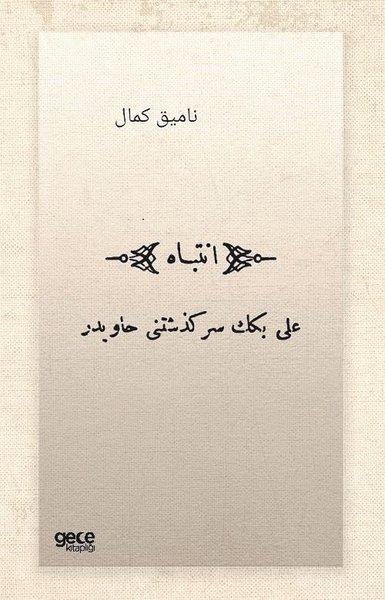 نامیق كمال
انتباه
علی بكك سركذشتنی حاویدر
gece
kitaplığı